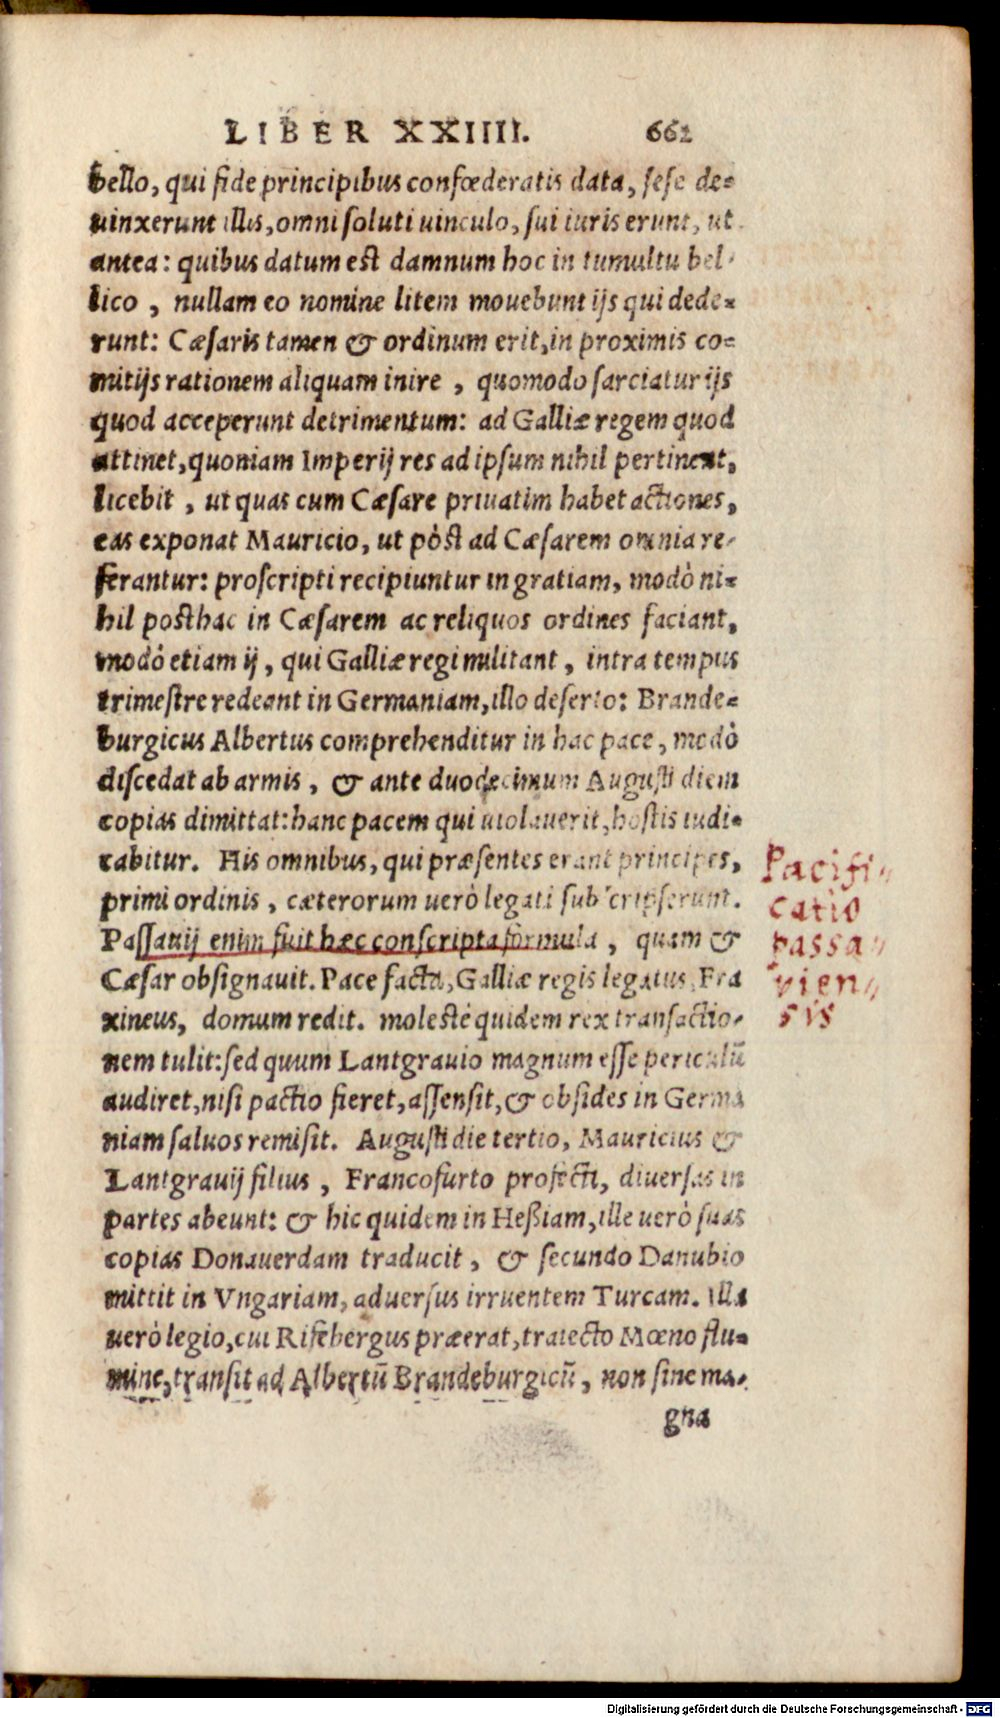 LIBER XXIIII. 662
bello, qui fide principibus confœderatis data, sese de=
uinxerunt illis, omni soluti uinculo, sui iuris erunt, ut
antea: quibus datum est damnum hoc in tumultu bel-
lico, nullam eo nomine litem mouebunt ijs qui dede=
runt: Cæsaris tamen & ordinum erit, in proximis co=
mitijs rationem aliquam inire, quomodo sarciatur ijs
quod acceperunt detrimentum: ad Galliæ regem quod
attinet, quoniam Imperij res ad ipsum nihil pertinent,
licebit, ut quas cum Cæsare priuatim habet actiones,
eas exponat Mauricio, ut pòst ad Cæsarem omnia re-
ferantur: proscripti recipiuntur in gratiam, modò ni=
hil posthac in Cæsarem ac reliquos ordines faciant,
modò etiam ij, qui Galliæ regi militant, intra tempus
trimestre redeant in Germaniam, illo deserto: Brande=
burgicus Albertus comprehenditur in hac pace, modò
discedat ab armis, & ante duodecimum Augusti diem
copias dimittat: hanc pacem qui uiolauerit, hostis iudi=
cabitur. His omnibus, qui præsentes erant principes,
primi ordinis, cæterorum uerò legati subscripserunt.
Passauij enim fuit hæc conscripta formula, quam &
Cæsar obsignauit. Pace facta, Galliæ regis legatus, Fra
xineus, domum redit. molestè quidem rex transactio-
nem tulit: sed quum Lantgrauio magnum esse periculū
audiret, nisi pactio fieret, assensit, & obsides in Germa
niam saluos remisit. Augusti die tertio, Mauricius &
Lantgrauij filius, Francofurto profecti, diuersas in
partes abeunt: & hic quidem in Heßiam, ille uerò suas
copias Donauerdam traducit, & secundo Danubio
mittit in Vngariam, aduersus irruentem Turcam. Illa
uerò legio, cui Rifebergus præerat, traiecto Mœno flu=
mine, transit ad Albertū Brandeburgicū, non sine ma-
gna
Pacifi=
catio
passa=
vien=
sis
Digitalisierung gefördert durch die Deutsche Forschungsgemeinschaft - DFG